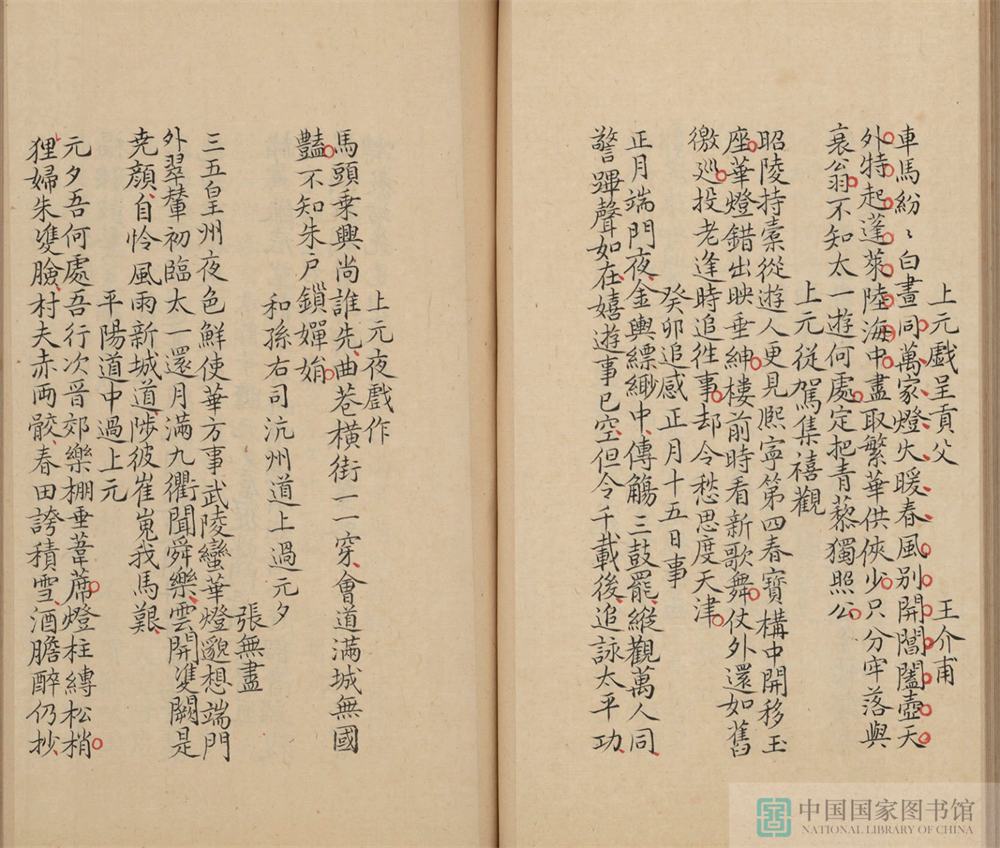 上元戲呈貢父　王介甫
車馬紛〻白晝同萬家燈火暖春風别開閶闔壺天
外特起蓬萊陸海中盡取繁華供俠少只分牢落與
衰翁不知太一遊何處定把青藜獨照公
上元從駕集禧觀
昭陵持橐從遊人更見熙寧第四春寶構中開移玉
座華燈錯出映垂紳樓前時看新歌舞仗外還如舊
徼廵投老逢時追徃事却令愁思度天津
癸卯追感正月十五日事
正月端門夜金輿縹緲中傳觴三鼓罷縱觀萬人同
警蹕聲如在嬉遊事已空但令千載後追詠太平功
上元夜戲作
馬頭乗興尚誰先曲巷橫街一一穿會道滿城無國
豔不知朱户鎖嬋娟
和孫右司沆州道上過元夕
張無盡
三五皇州夜色鮮使華方事武陵蠻華燈邈想端門
外翠輦初臨太一還月滿九衢聞舜樂雲開雙闕是
堯顔自怜風雨新城道陟彼崔嵬我馬艱
平陽道中過上元
元夕吾何處吾行次晉郊樂棚垂葦蓆燈柱縛松梢
狸婦朱雙臉村夫赤兩骹春田誇積雪酒膽醉仍抄
中国国家图书馆
NATIONAL LIBRARY OF CHINA